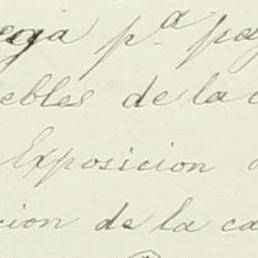 ega p.ª pa
ebles de la c
Exposicion
cion de la ca